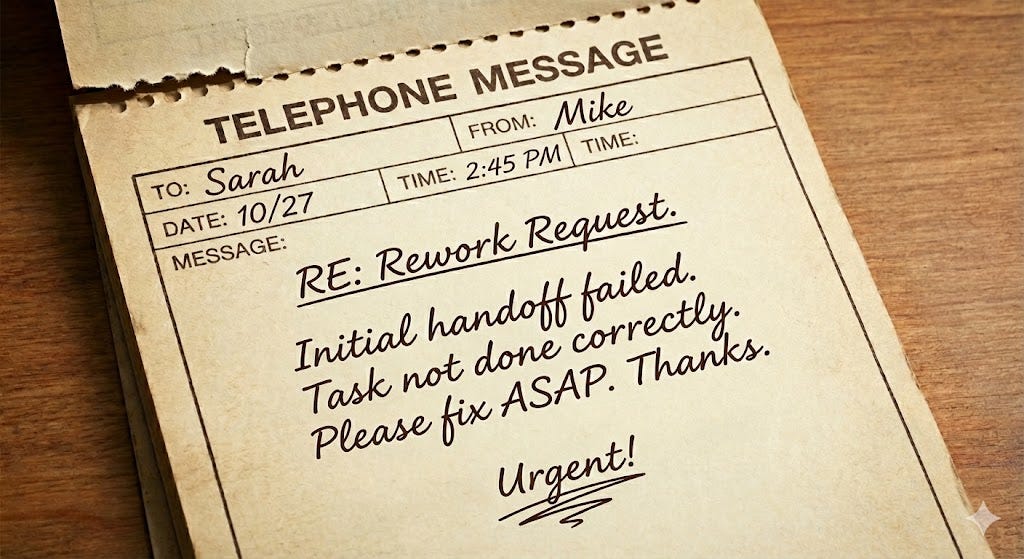 TELEPHONE MESSAGE
TO: Sarah FROM: Mike
DATE: 10/27 TIME: 2:45 PM TIME:
MESSAGE:
RE: Rework Request.
Initial handoff failed.
Task not done correctly.
Please fix ASAP. Thanks.
Urgent!